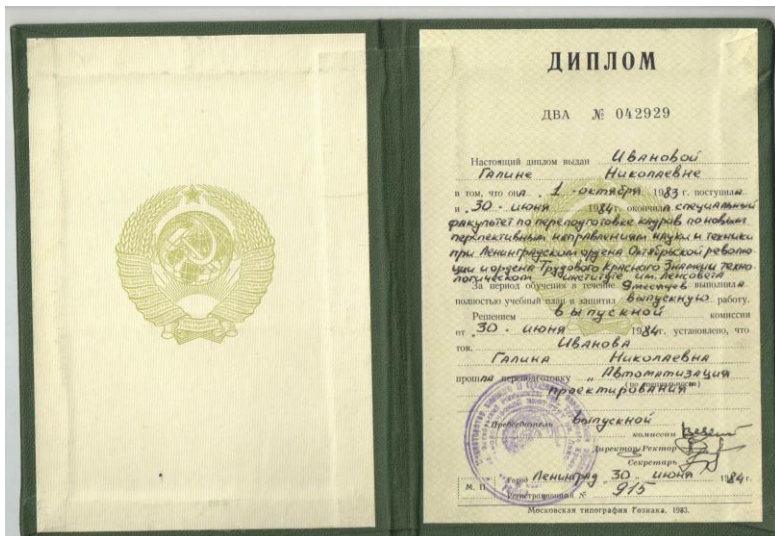 ДИПЛОМ
ДВА № 042929
Настоящий диплом выдан Ивановой
Галине Николаевне
в том, что она 1 октября 1983 г. поступила
и 30 июня 1984 г. окончила специальный
факультет по переподготовке кадров по новым
перспективным направлениям науки и техники
при Ленинградском ордена Октябрьской револю-
ции и ордена Трудового Красного Знамени техно-
логическом институте им. Ленсовета
За период обучения в течение 9 месяцев выполнила
полностью учебный план и защитил выпускную работу.
Решением выпускной комиссии
от 30 июня 1984 г. установлено, что
тов. Иванова
Галина Николаевна
прошла переподготовку „Автоматизация
(по специальности)
проектирования
Председатель выпускной
комиссии
Директор/Ректор
Секретарь
Город Ленинград 30 июня 1984 г.
М. П. Регистрационный № 915
Московская типография Гознака. 1983.